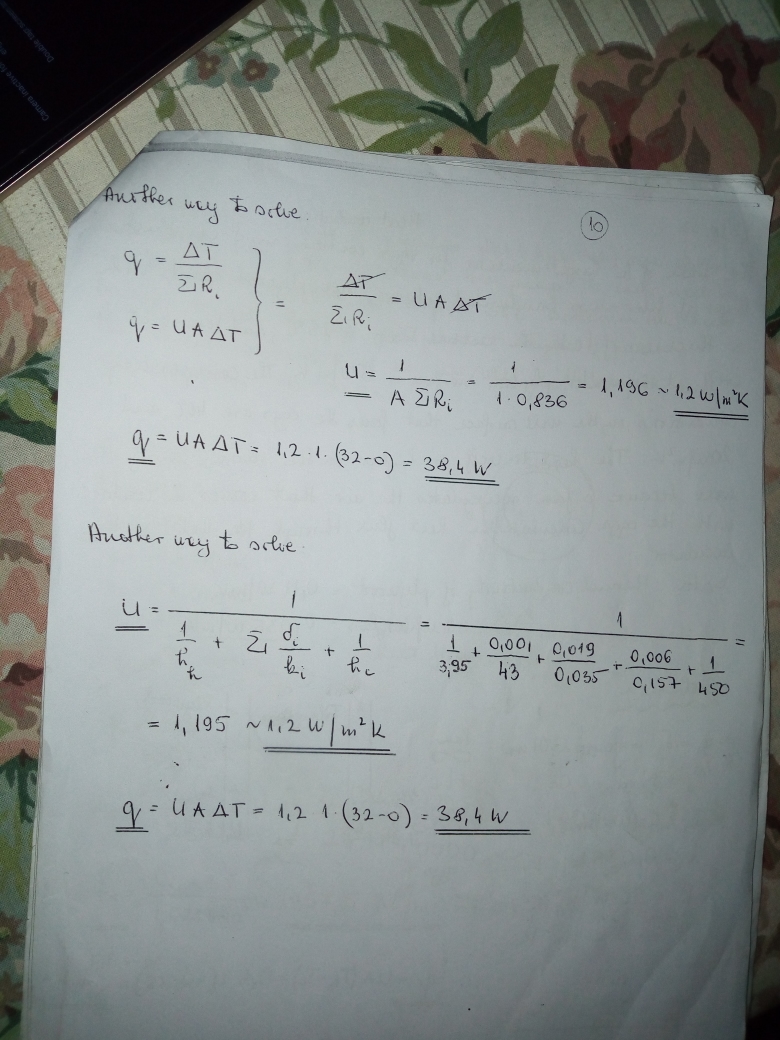 Another way to solve.
10
q = ΔT / ΣRᵢ
q = U A ΔT
} = ΔT / ΣRᵢ = U A ΔT
U = 1 / (A ΣRᵢ) = 1 / (1 · 0,836) = 1,196 ~ 1,2 W/m²K
q = U A ΔT = 1,2 · 1 · (32-0) = 38,4 W
Another way to solve.
U = 1 / (1/hₕ + Σ δᵢ/kᵢ + 1/h_c) = 1 / (1/3,95 + 0,001/43 + 0,019/0,035 + 0,006/0,157 + 1/450) =
= 1,195 ~ 1,2 W/m²K
q = U A ΔT = 1,2 1 · (32-0) = 38,4 W